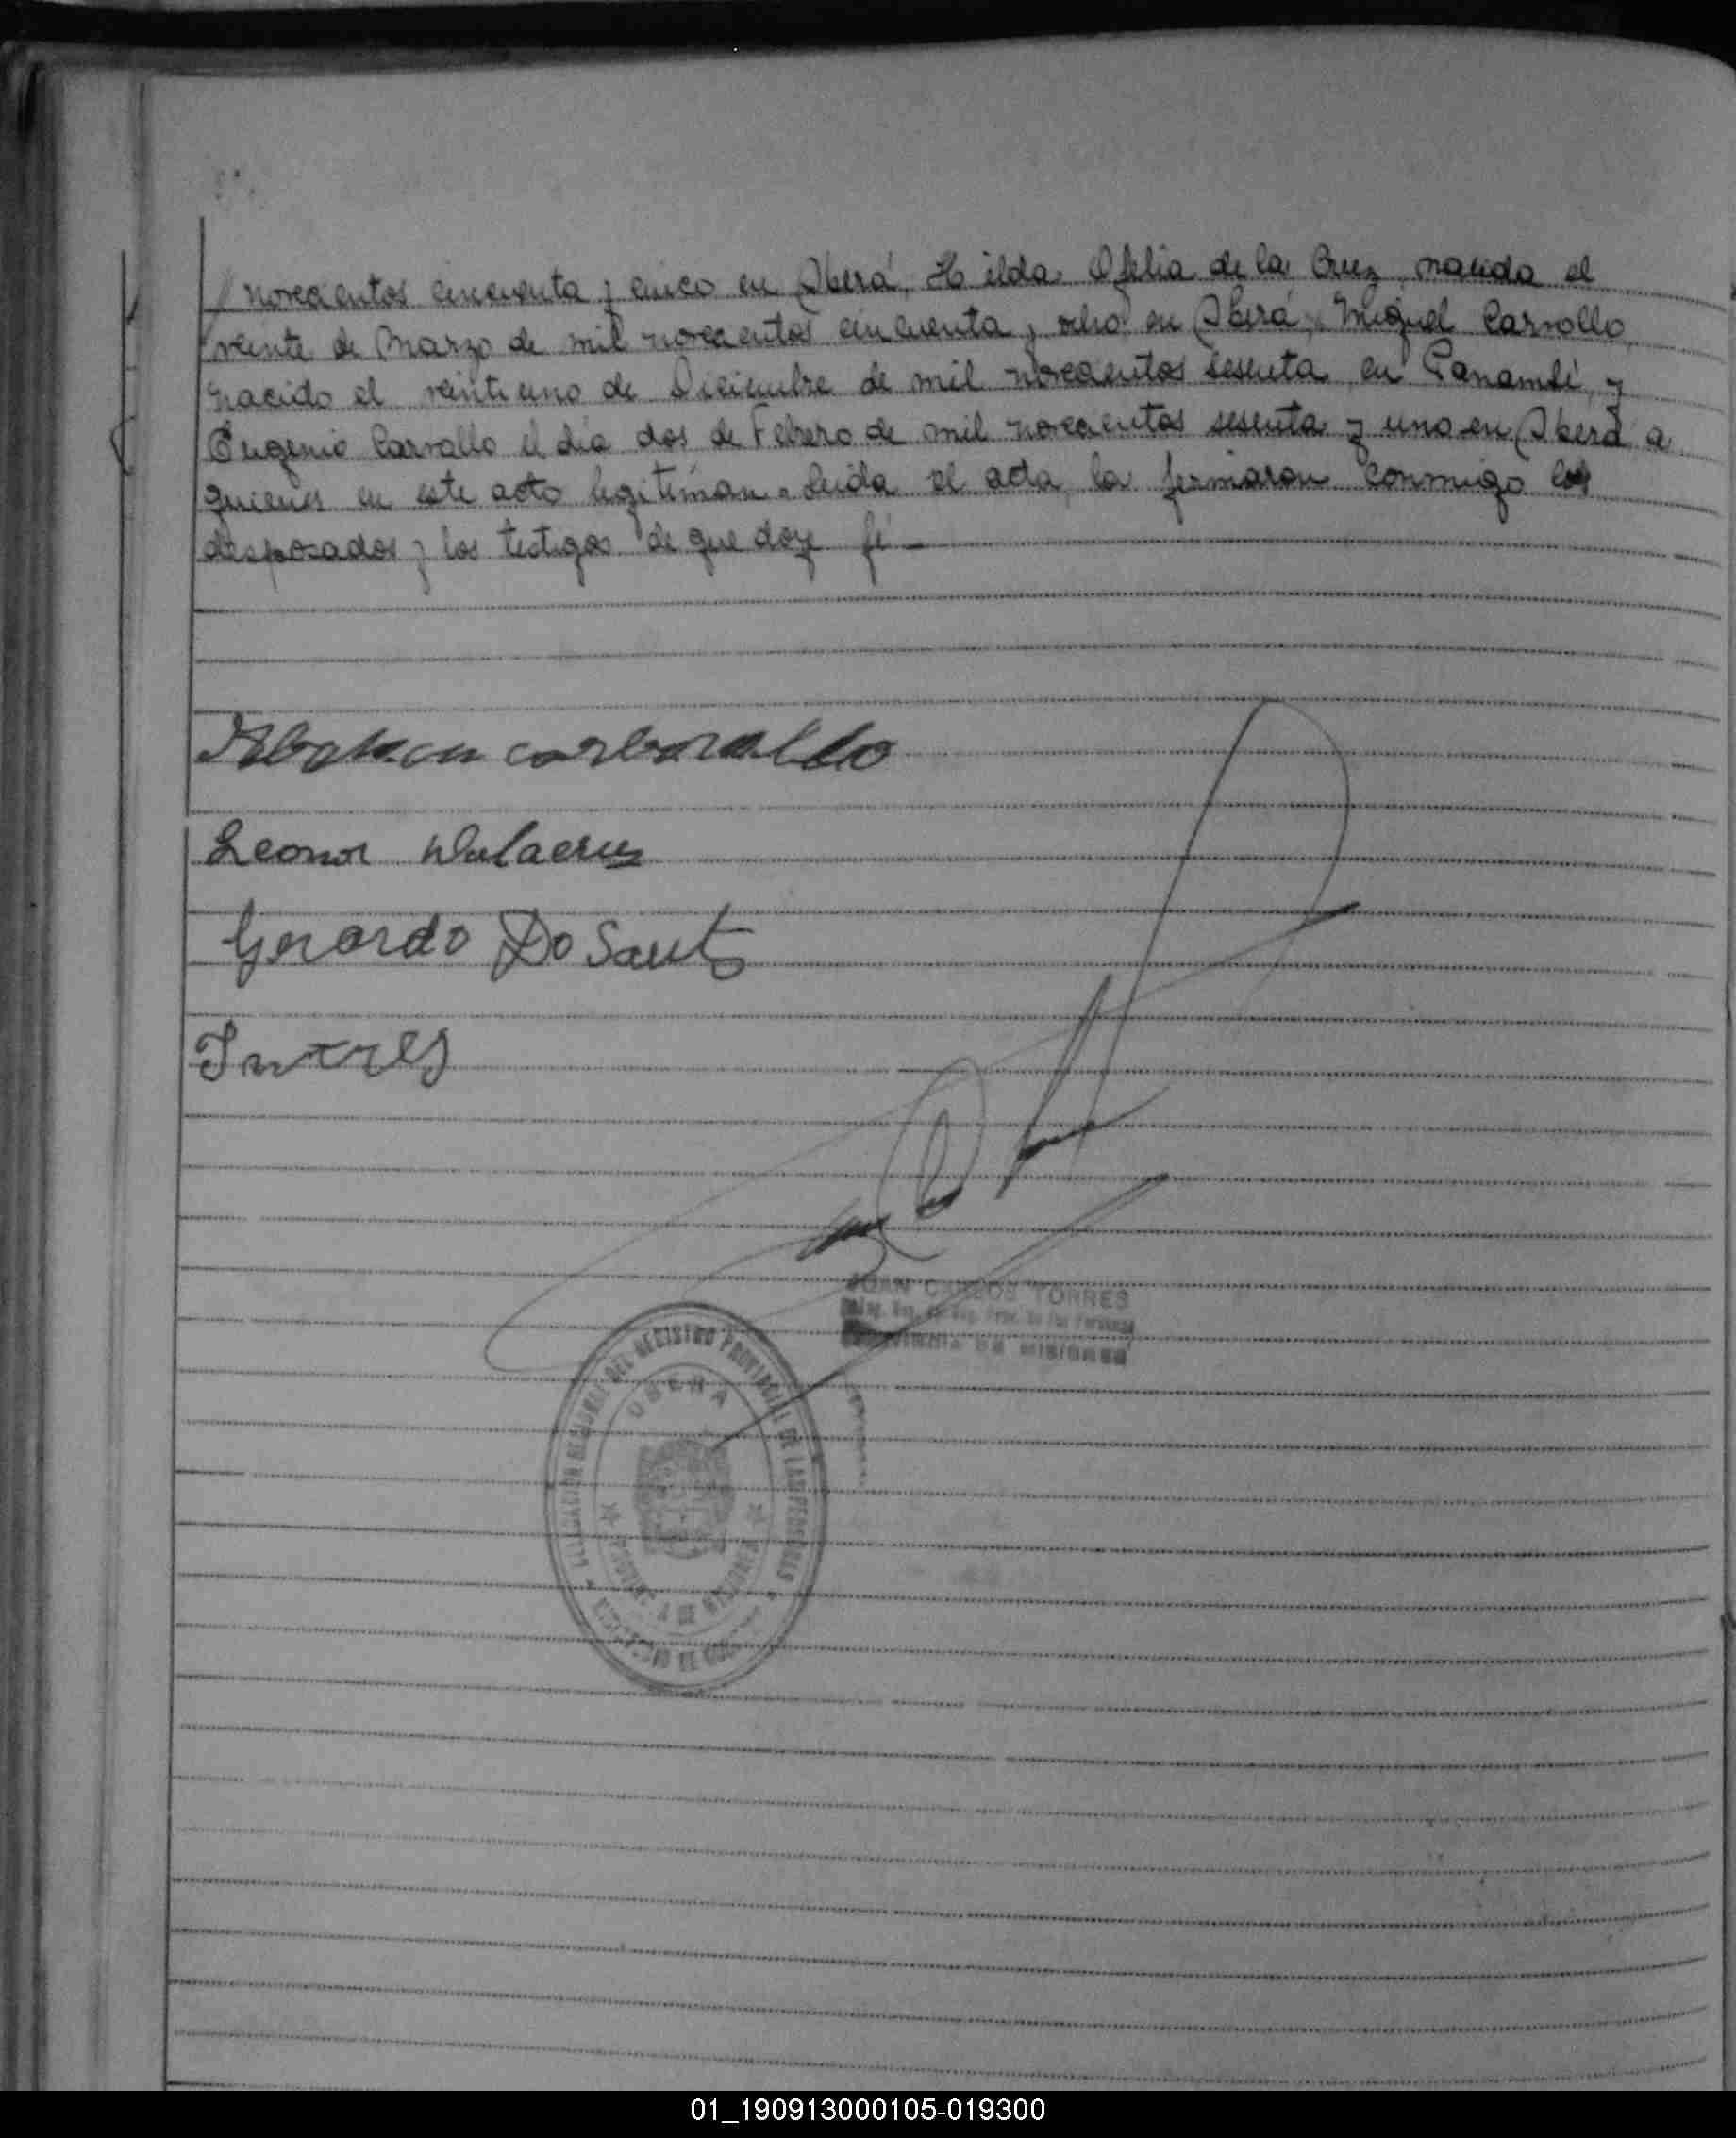 novecientos cincuenta y cinco en Oberá, Hilda Ofelia de la Cruz, nacida el
veinte de Marzo de mil novecientos cincuenta y ocho en Oberá, Miguel Carvallo,
nacido el veintiuno de Diciembre de mil novecientos sesenta en Panambí, y
Eugenio Carvallo el día dos de Febrero de mil novecientos sesenta y uno en Oberá a
quienes en este acto legitiman. Leida el acta, la firmaron conmigo los
desposados y los testigos de que doy fé —
carballo
Leonor Delacruz
Gerardo Do Santos
JUAN CARLOS TORRES
PROVINCIA DE MISIONES
DEL REGISTRO PROVINCIAL DE LAS PERSONAS
OBERA
MISIONES
01_190913000105-019300